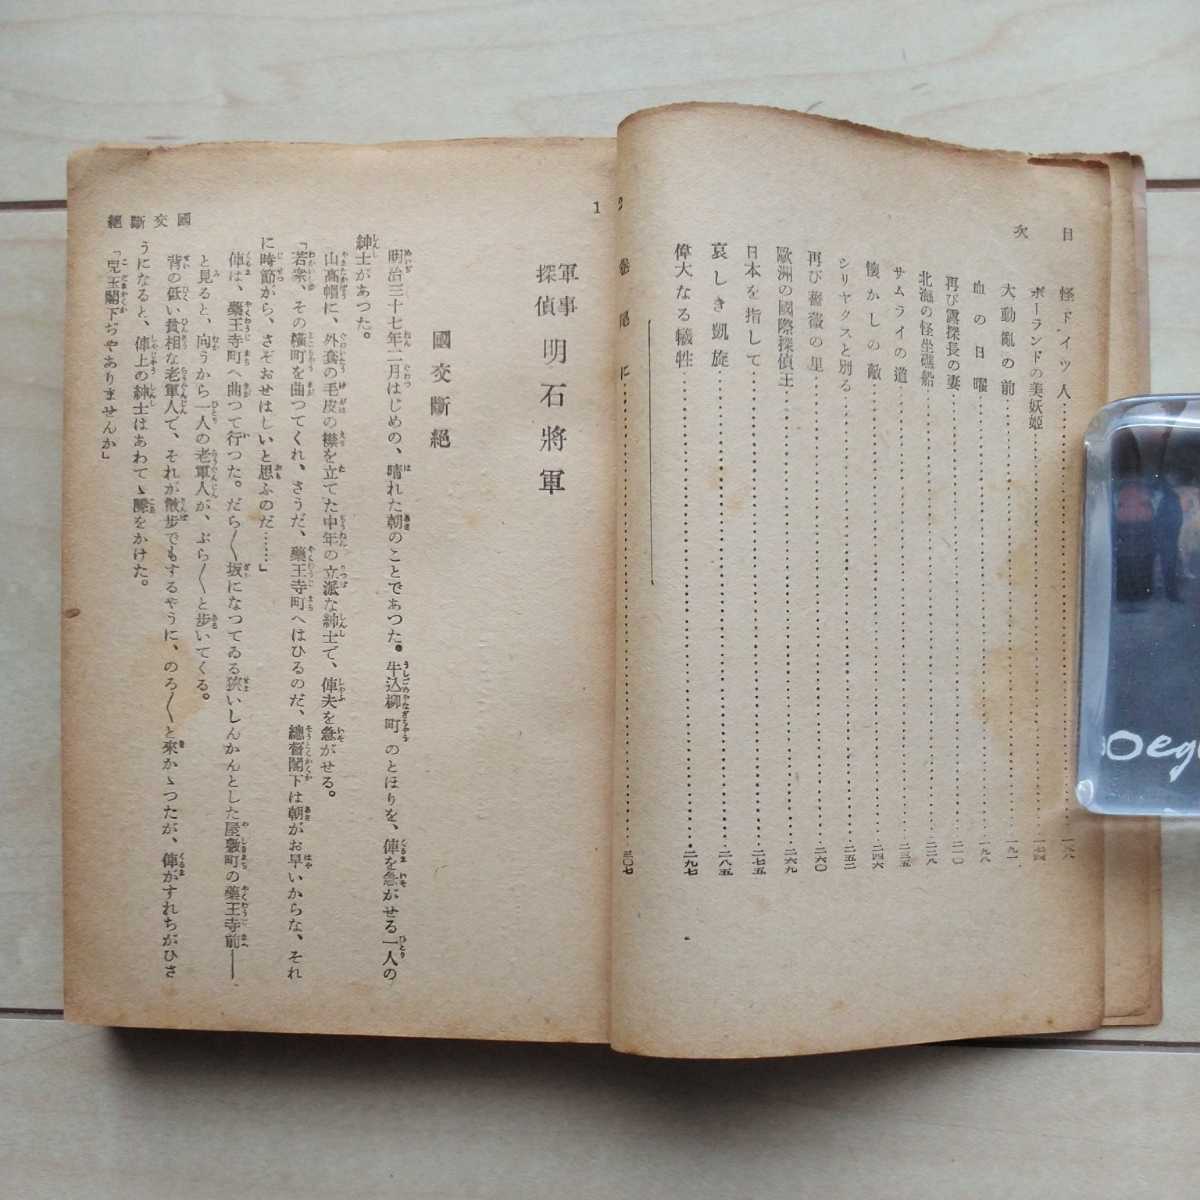 目次
怪ドイツ人……一六八
ポーランドの美妖姫……一七四
大動亂の前……一九一
血の日曜……一九八
再び露探長の妻……二一〇
北海の怪坐礁船……二二八
サムライの道……二三五
懐かしの敵……二四六
シリヤクスと別る……二五二
再び薔薇の里……二六〇
歐洲の國際探偵王……二六九
日本を指して……二七五
哀しき凱旋……二八五
偉大なる犠牲……二九七
卷尾に……三〇七
2
1
軍事探偵 明石將軍
國交斷絕
明治三十七年二月はじめの、晴れた朝のことであつた。牛込柳町のとほりを、俥を急がせる一人の
紳士があつた。
山高帽に、外套の毛皮の襟を立てた中年の立派な紳士で、俥夫を急がせる。
「若衆、その横町を曲つてくれ、さうだ、藥王寺町へはひるのだ、總督閣下は朝がお早いからな、それ
に時節がら、さぞおせはしいと思ふのだ……」
俥は、藥王寺町へ曲つて行つた。だら〳〵坂になつてゐる狹いしんかんとした屋敷町の藥王寺前――
と見ると、向うから一人の老軍人が、ぶら〳〵と歩いてくる。
背の低い貧相な老軍人で、それが散歩でもするやうに、のろ〳〵と來かゝつたが、俥がすれちがひさ
うになると、俥上の紳士はあわてゝ聲をかけた。
「兒玉閣下ぢやありませんか」
國交斷絕